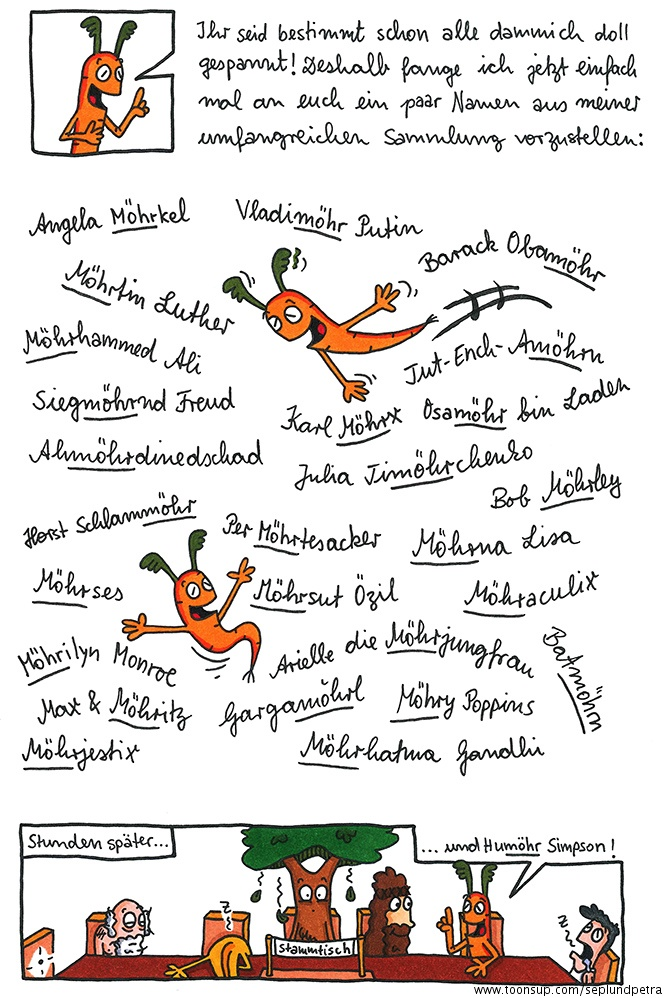 Ihr seid bestimmt schon alle dammich doll
gespannt! Deshalb fange ich jetzt einfach
mal an euch ein paar Namen aus meiner
umfangreichen Sammlung vorzustellen:
Angela Möhrkel
Vladimöhr Putin
Barack Obamöhr
Möhrtin Luther
Möhrhammed Ali
Tut-Ench-Amöhrn
Siegmöhrnd Freud
Karl Möhrx
Osamöhr bin Laden
Ahmöhrdinedschad
Julia Timöhrchenko
Bob Möhrley
Horst Schlammöhr
Per Möhrtesacker
Möhrna Lisa
Möhrses
Möhrsut Özil
Möhraculix
Möhrilyn Monroe
Arielle die Möhrjungfrau
Batmöhrn
Max & Möhritz
Gargamöhrl
Möhry Poppins
Möhrjestix
Möhrhatma Gandhi
Stunden später...
... und Humöhr Simpson!
Z
Stammtisch
Z
www.toonsup.com/seplundpetra